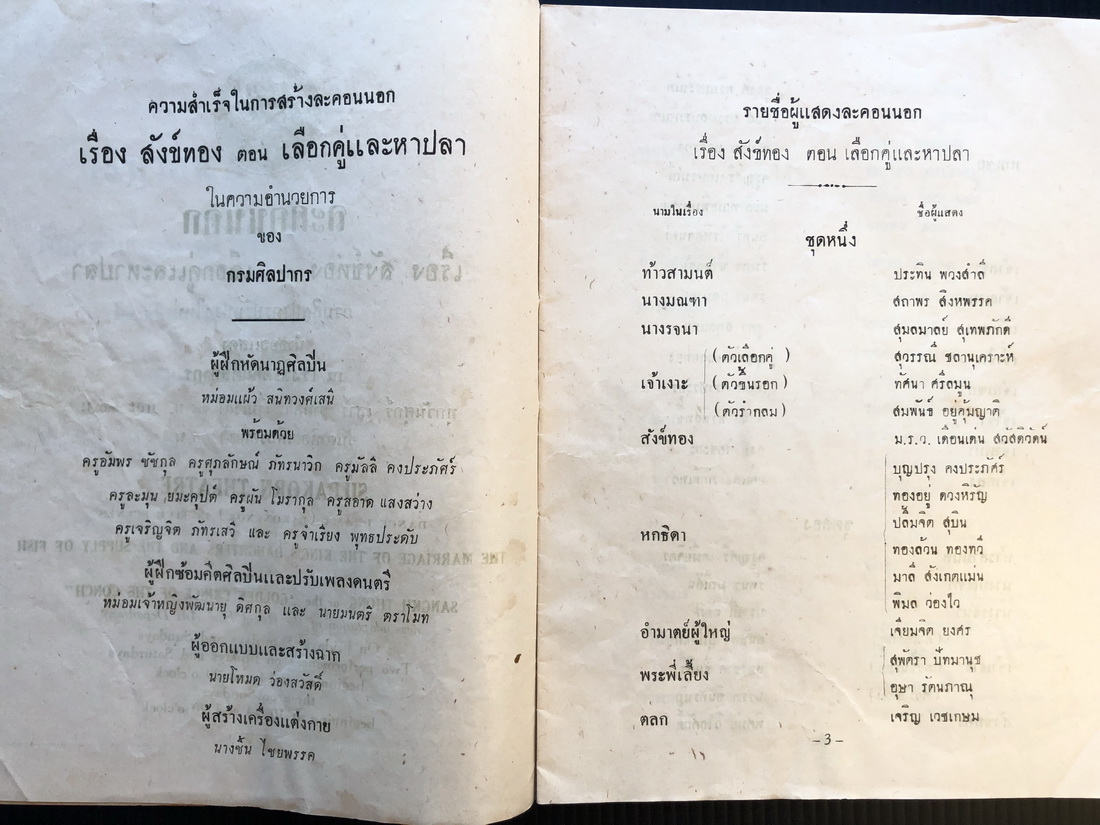 ความสำเร็จในการสร้างละคอนนอก
เรื่อง สังข์ทอง ตอน เลือกคู่และหาปลา
ในความอำนวยการ
ของ
กรมศิลปากร
ผู้ฝึกหัดนาฏศิลปีน
หม่อมแผ้ว สนิทวงศ์เสนิ
พร้อมด้วย
ครูอัมพร ชัชกุล ครูศุภลักษณ์ ภัทรนาวิก ครูมัลลิ คงประภัศร์
ครูละมุน ยมะคุปต์ ครูผัน โมรากุล ครูสอาด แสงสว่าง
ครูเจริญจิต ภัทรเสวี และ ครูจำเรียง พุทธประดับ
ผู้ฝึกซ้อมคีตศิลปีนและปรับเพลงดนตรี
หม่อมเจ้าหญิงพัฒนายุ ดิศกุล และ นายมนตรี ตราโมท
ผู้ออกแบบและสร้างฉาก
นายโหมด ว่องสวัสดิ์
ผู้สร้างเครื่องแต่งกาย
นางชั้น ไชยพรรค
รายชื่อผู้แสดงละคอนนอก
เรื่อง สังข์ทอง ตอน เลือกคู่และหาปลา
นามในเรื่อง ชื่อผู้แสดง
ชุดหนึ่ง
ท้าวสามนต์ ประทิน พวงสำลี
นางมณฑา สถาพร สิงหพรรค
นางรจนา สุมลมาลย์ สุเทพภักดี
(ตัวเลือกคู่) สุวรรณี ชลานุเคราะห์
เจ้าเงาะ (ตัวขึ้นรอก) ทัศนา ศรีลมูน
(ตัวรำกลม) สมพันธ์ อยู่คุ้มญาติ
สังข์ทอง ม.ร.ว. เดือนเด่น สวัสดิวัตน์
บุญปรุง คงประภัศร์
ทองอยู่ ดวงหิรัญ
ปลื้มจิต สุบิน
หกธิดา ทองล้วน ทองทวี
มาลี สังเกตแม่น
พิมล ว่องไว
อำมาตย์ผู้ใหญ่ เจียมจิต ยงศร
สุพัตรา ปัทมานุช
พระพี่เลี้ยง
อุษา รัตนภาณุ
ตลก เจริญ เวชเกษม
–3–